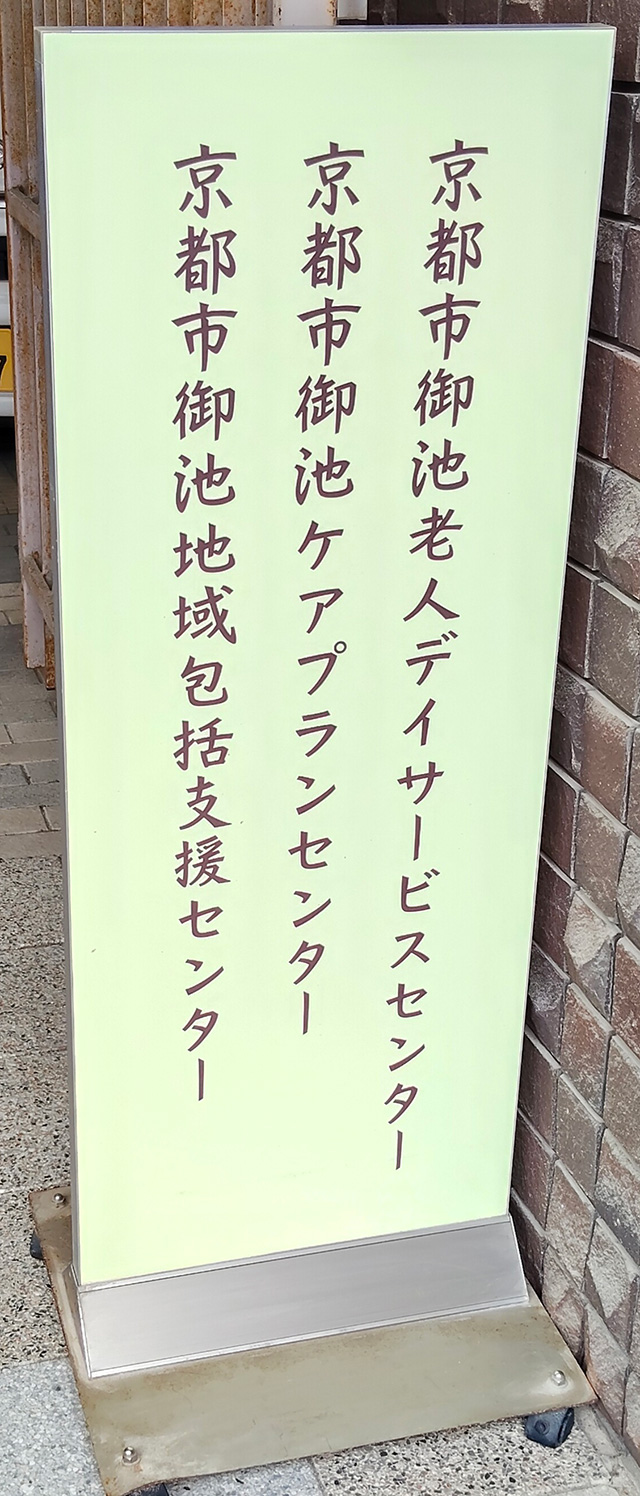 京都市御池老人デイサービスセンター
京都市御池ケアプランセンター
京都市御池地域包括支援センター
7